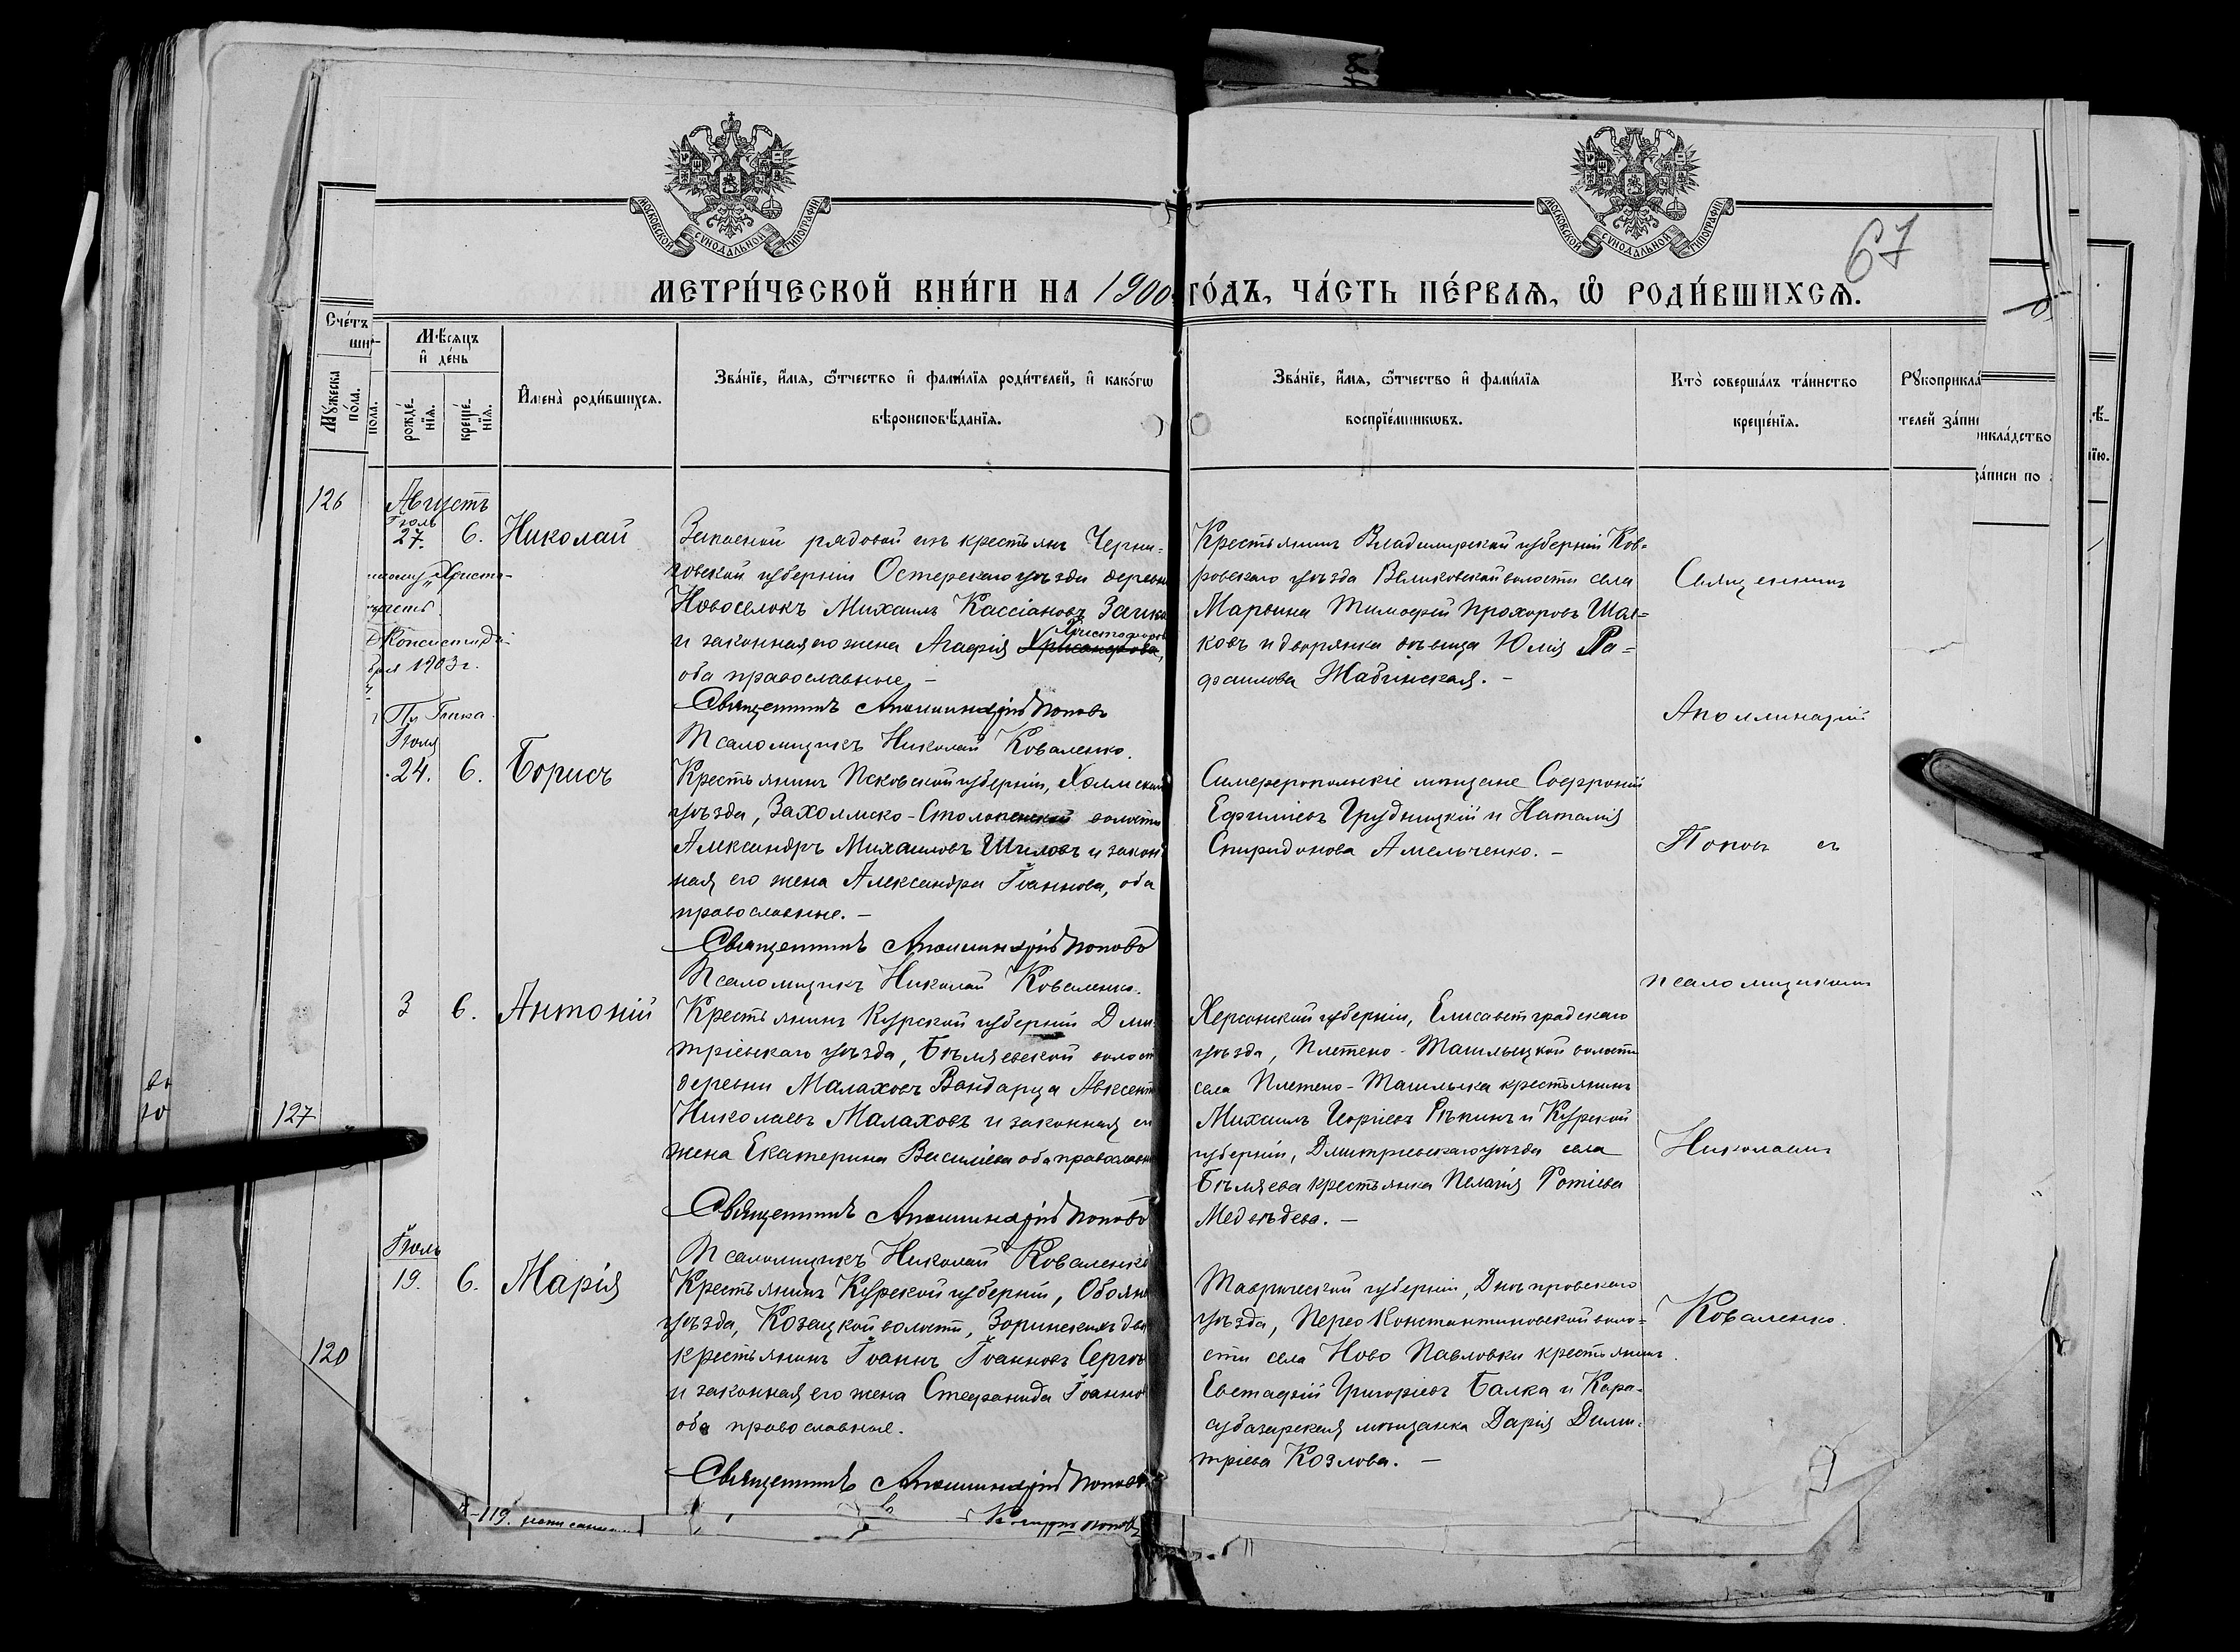 МОСКОВСКОЙ СѴНОДАЛЬНОЙ ТИПОГРАФІИ
МОСКОВСКОЙ СѴНОДАЛЬНОЙ ТИПОГРАФІИ
67
МЕТРИ́ЧЕСКОЙ КНИ́ГИ НА 1900 ГО́ДЪ, ЧА́СТЬ ПЕ́РВАѦ, Ѡ҆ РОДИ́ВШИХСѦ.
Сче́тъ
Мꙋ́жеска по́ла.
пола.
Мѣ́сѧцъ и҆ де́нь
рожде́нїѧ.
креще́нїѧ.
И҆мена̀ роди́вшихсѧ.
Зва́нїе, и҆́мѧ, ѻ҆́тчество и҆ фами́лїѧ роди́телей, и҆ како́гѡ
вѣроисповѣ́данїѧ.
Зва́нїе, и҆́мѧ, ѻ҆́тчество и҆ фами́лїѧ
воспрїе́мникѡвъ.
Кто̀ соверша́лъ та́инство
креще́нїѧ.
Рꙋкоприкла́
телей за́пи
икла́дство
за́писи по
126
Августъ
Іюль
27.
6.
Николай
Запасной рядовой изъ крестьянъ Черни-
говской губерніи Остерскаго уѣзда деревни
Новоселокъ Михаилъ Кассіановъ Заика
Христофоров
и законная его жена Агафія Хрисанфова,
оба православные. –
Священникъ Аполлинарій Поповъ
Псаломщикъ Николай Коваленко.
Крестьянинъ Владимірской губерніи Ков-
ровскаго уѣзда Великовской волости села
Марьина Тимофей Прохоровъ Шал-
ковъ и дворянка дѣвица Юлія Ра-
фаилова Жабинская. –
1903 г.
Іюля
24.
6.
Борисъ
Крестьянинъ Псковской губерніи, Холмскаго
уѣзда, Захолмско-Столопенской волости
Александръ Михаиловъ Шиловъ и закон
ная его жена Александра Іоаннова, оба
православные. –
Священникъ Аполлинарій Поповъ
Псаломщикъ Николай Коваленко.
Симферопольскіе мѣщане Софроній
Ефиміевъ Грудницкій и Наталія
Спиридонова Амельченко. –
127
3
6.
Антоній
Крестьянинъ Курской губерніи Дми-
тріевскаго уѣзда, Бѣляевской волост
деревни Малахов Авксент
Николаевъ Малаховъ и законная ег
жена Екатерина Василіева оба православн
Священникъ Аполлинарій Поповъ
Псаломщикъ Николай Коваленко
Херсонской губерніи, Елисаветградскаго
уѣзда, Плетено-Ташлыцкой волости
села Плетено-Ташлыка крестьянинъ
Михаилъ Георгіевъ Рѣпинъ и Курской
губерніи, Дмитріевскаго уѣзда села
Бѣляева крестьянка Пелагія Фотіева
Медвѣдева. –
120
Іюль
19.
6.
Марія
Крестьянинъ Курской губерніи, Обоянс
уѣзда, Козацкой волости, Зоринскихъ дво
крестьянинъ Іоаннъ Іоанновъ Сергѣе
и законная его жена Стефанида Іоанно
оба православные.
Священникъ Аполлинарій Поповъ
Таврической губерніи, Днѣпровскаго
уѣзда, Перво Константиновской воло-
сти села Ново Павловки крестьянинъ
Евстафій Григоріевъ Балка и Кара-
субазарская мѣщанка Дарія Дими-
тріева Козлова. –
Священникъ
Аполлинарій
Поповъ съ
псаломщикомъ
Николаемъ
Коваленко.
119.